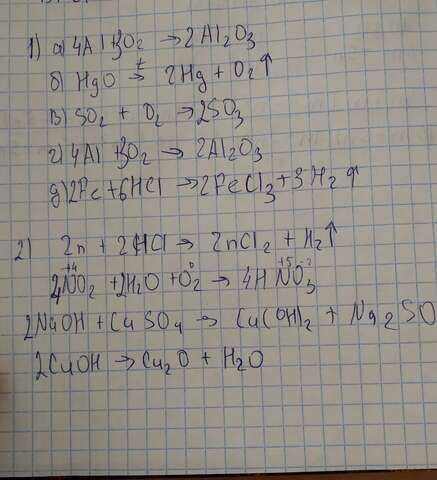 1) а) 4Al 3O₂ → 2Al₂O₃
б) HgO t→ 2Hg + O₂↑
в) SO₂ + O₂ → 2SO₃
г) 4Al 3O₂ → 2Al₂O₃
д) 2Fe + 6HCl → 2FeCl₃ + 3H₂↑
2) Zn + 2HCl → ZnCl₂ + H₂↑
+4 0 +5 -2
4NO₂ + 2H₂O + O₂ → 4HNO₃
2NaOH + CuSO₄ → Cu(OH)₂ + Na2SO
2CuOH → Cu₂O + H₂O